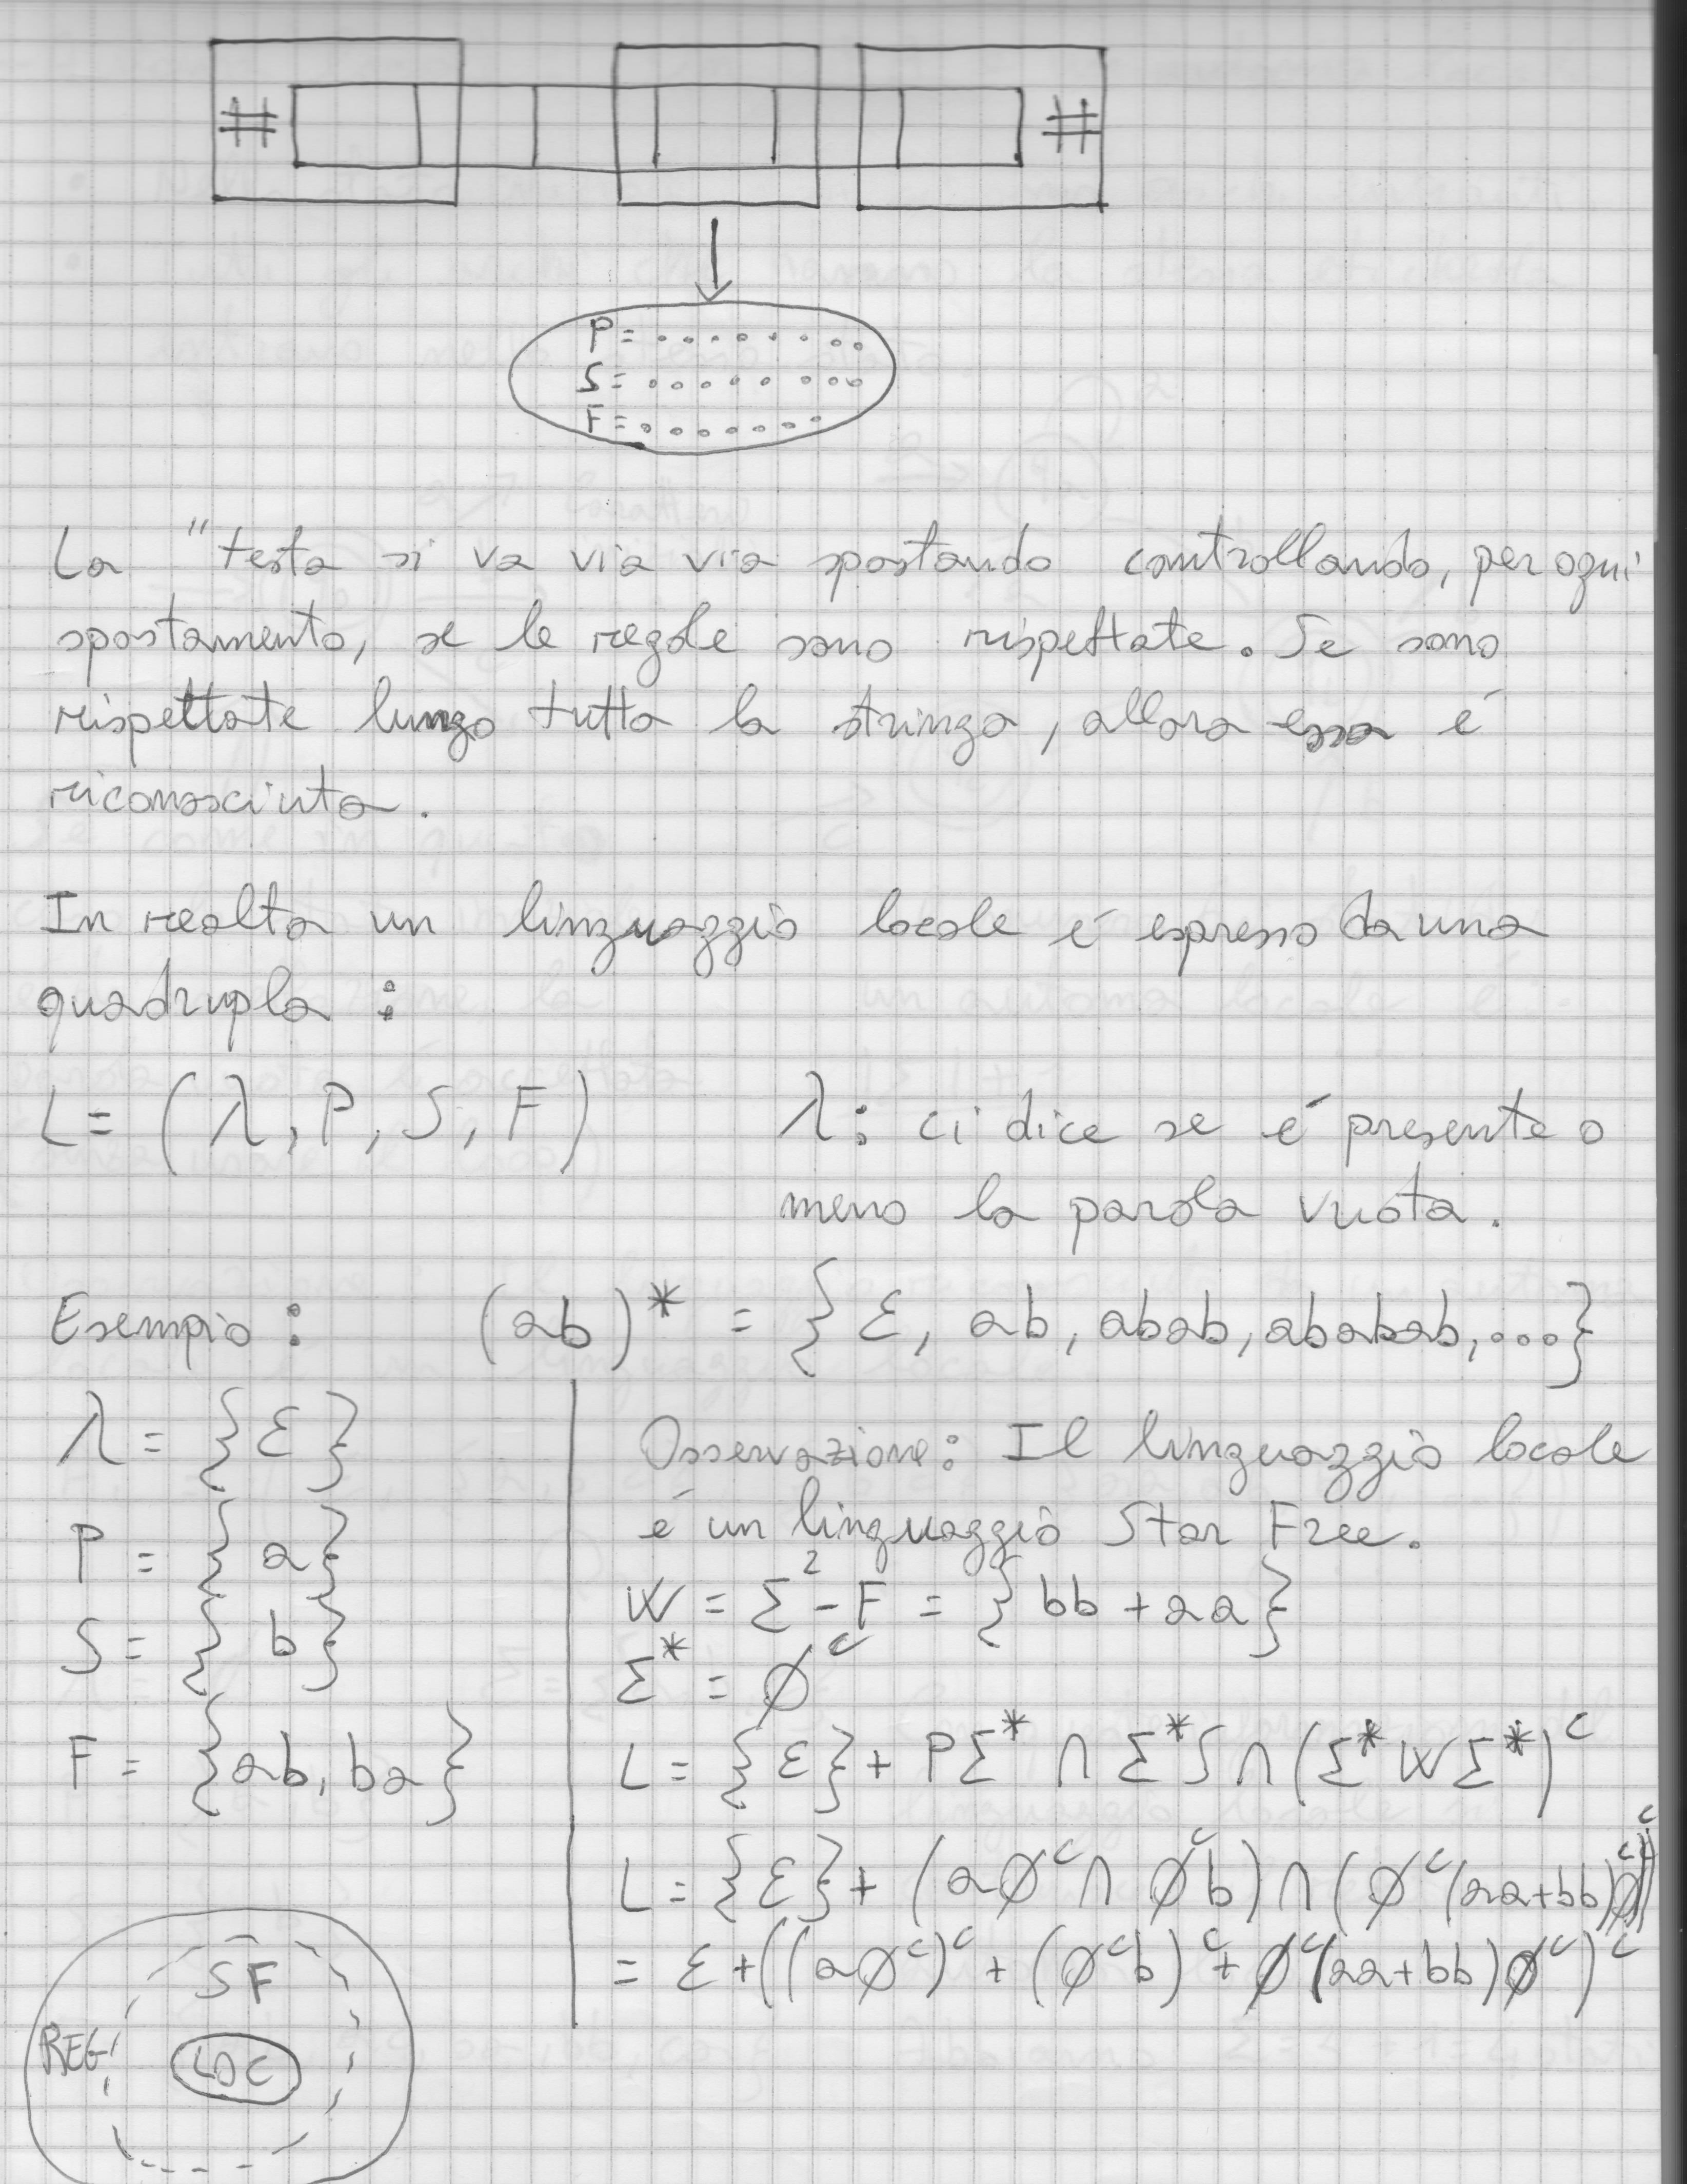 # #
P = . . . . . . . .
S = . . . . . . . .
F = . . . . . . .
La "testa si va via via spostando controllando, per ogni
spostamento, se le regole sono rispettate. Se sono
rispettate lungo tutta la stringa, allora essa é
riconosciuta.
In realta un linguaggio locale é espresso da una
quadrupla :
L = (λ, P, S, F)
λ: ci dice se é presente o
meno la parola vuota.
Esempio : (ab)* = {ε, ab, abab, ababab, ...}
λ = {ε}
P = {a}
S = {b}
F = {ab, ba}
Osservazione: Il linguaggio locale
é un linguaggio Star Free.
W = Σ² - F = {bb + aa}
Σ* = ∅ᶜ
L = {ε} + PΣ* ∩ Σ*S ∩ (Σ*WΣ*)ᶜ
L = {ε} + (a∅ᶜ ∩ ∅ᶜb) ∩ (∅ᶜ(aa+bb)∅ᶜ)ᶜ
= ε + ((a∅ᶜ)ᶜ + (∅ᶜb)ᶜ + ∅ᶜ(aa+bb)∅ᶜ)ᶜ
SF
REG
LOC